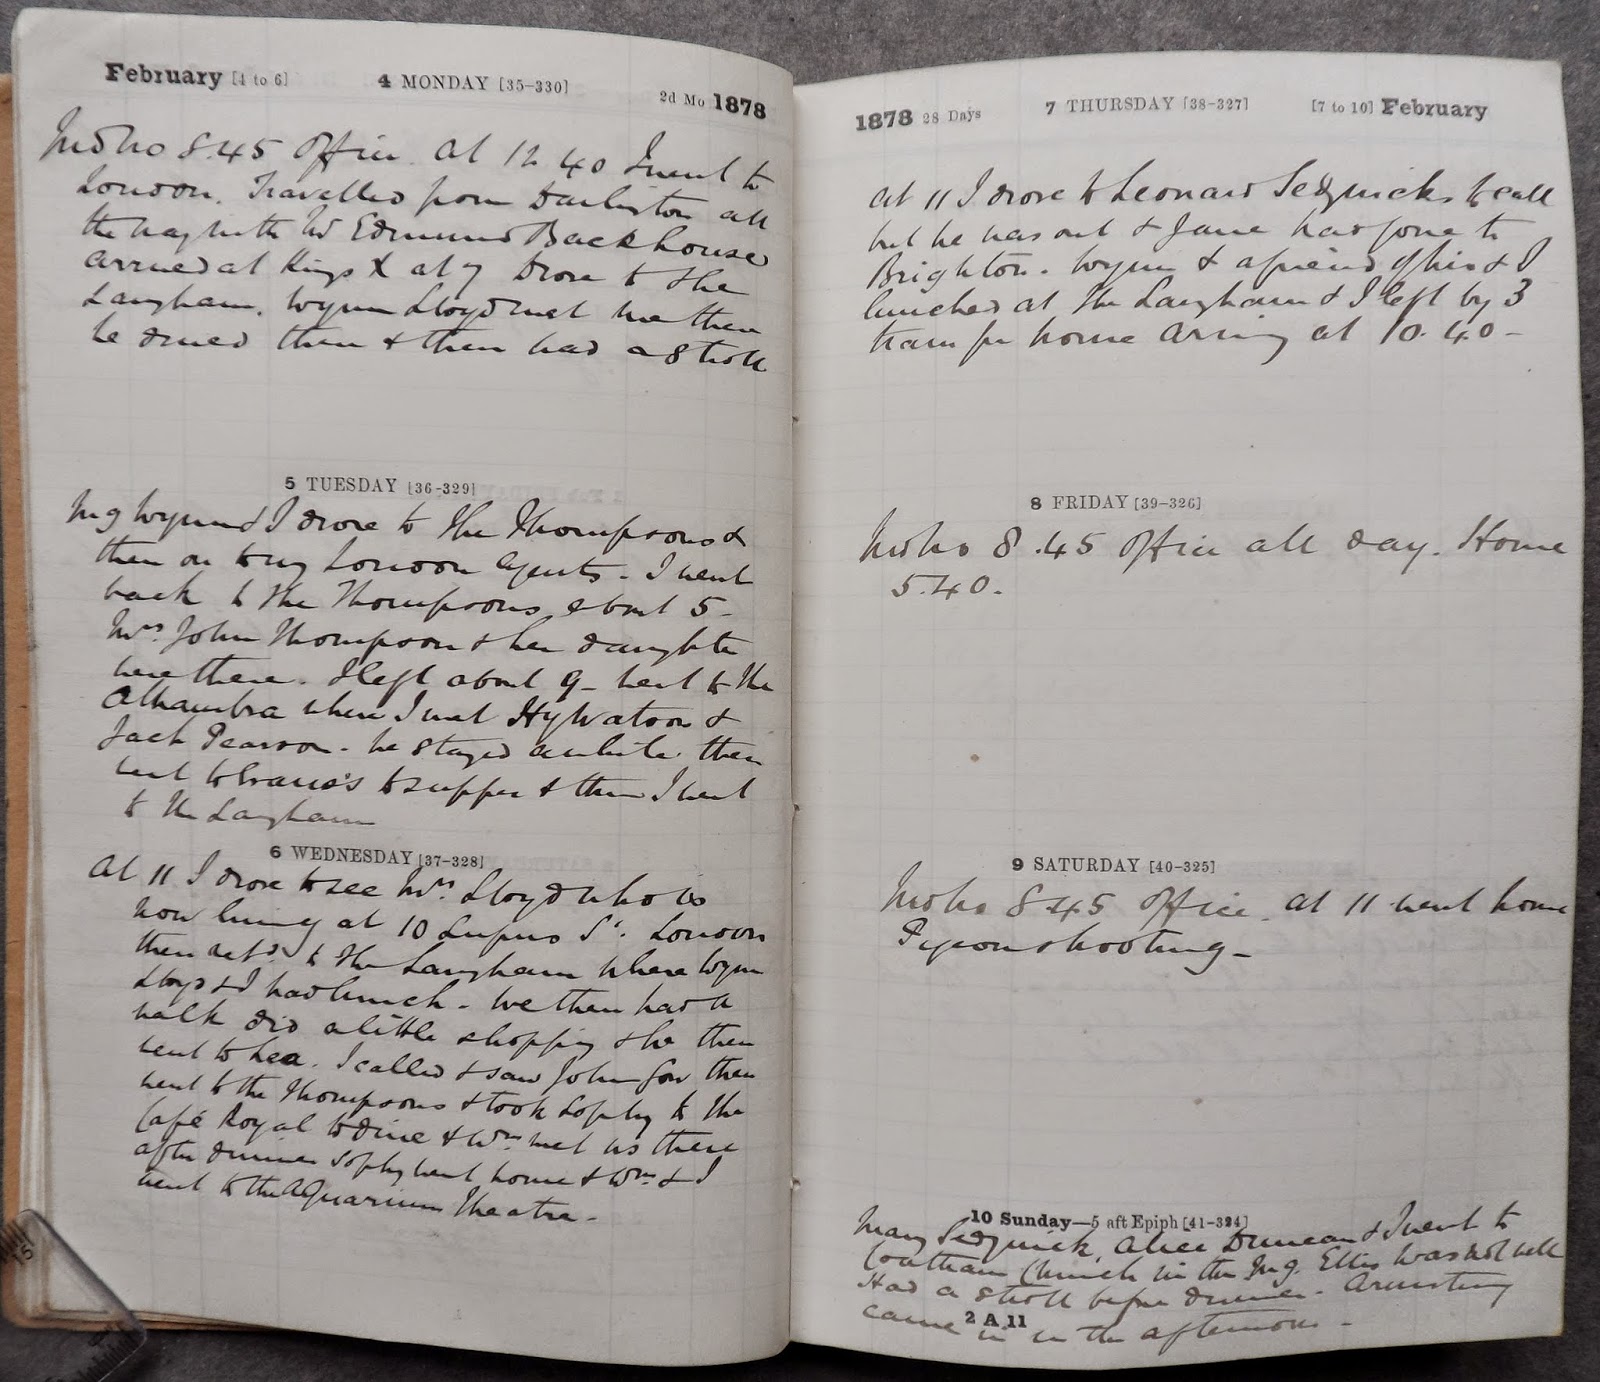 February [4 to 6] 4 MONDAY [35-330] 2d Mo 1878
8.45 office. at 12.40 I went to
London. Travelled from Darlington all
the way with Mr Edmund Backhouse
arrived at Kings X at 7 Drove to the
Langham. Wynn Lloyd met me there
he dined there & then had a stroll
5 TUESDAY [36-329]
Mg Wynn & I drove to the Thompsons &
then on to my London Agents. I went
back to the Thompsons about 5 -
Mrs John Thompson & her daughter
were there. I left about 9 - went to the
Alhambra where I met Hy Watson &
Jack Pearson - he stayed awhile then
went to to supper & then I went
to the Langham
6 WEDNESDAY [37-328]
At 11 I drove to see Mrs. Lloyd who is
now living at 10 Lupus St. London
then retd. to the Langham where Wynn
Lloyd & I had lunch - We then had a
walk did a little shopping & he then
went to Lea. I called & saw John Gow then
went to the Thompsons & took Sophy to the
Café Royal to dine & Wm met us there
after dinner Sophy went home & Wm & I
went to the Aquarium Theatre -
1878 28 Days 7 THURSDAY [38-327] [7 to 10] February
at 11 I drove to Leonard Sedgwicks to call
but he was out & Jane had gone to
Brighton - Wynn & a friend of his & I
lunched at the Langham & I left by 3
train for home arriving at 10.40 -
8 FRIDAY [39-326]
8.45 office all day. Home
5.40.
9 SATURDAY [40-325]
8.45 office. at 11 went home
Pigeon shooting -
10 Sunday—5 aft Epiph [41-324]
Mary Sedgwick, Alice Duncan & I went to
Coatham Church in the Mg. Ellis was not well
Had a stroll before dinner - Armstrong
came in in the afternoon -
2 A 11
15